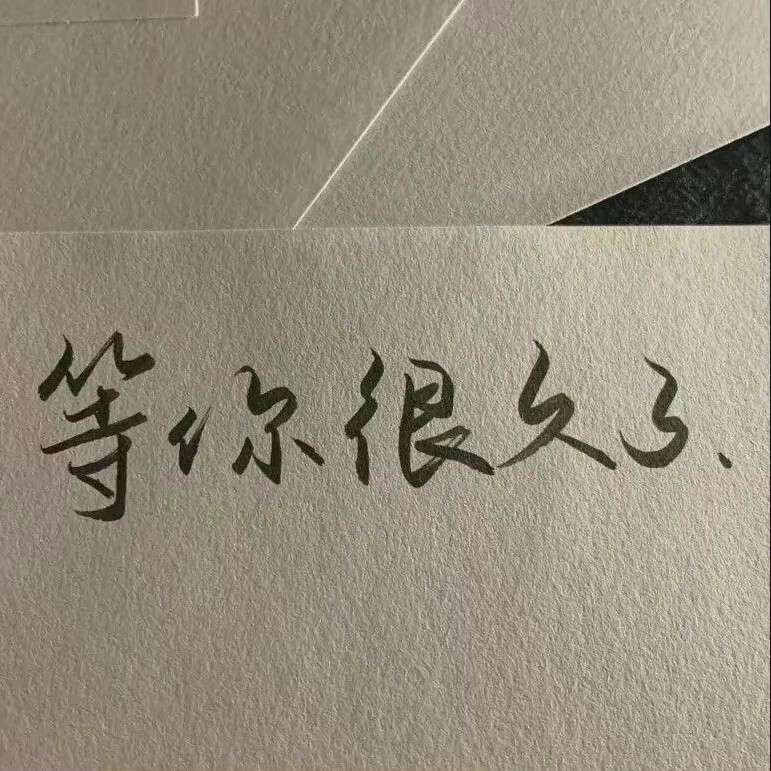 等你很久了、